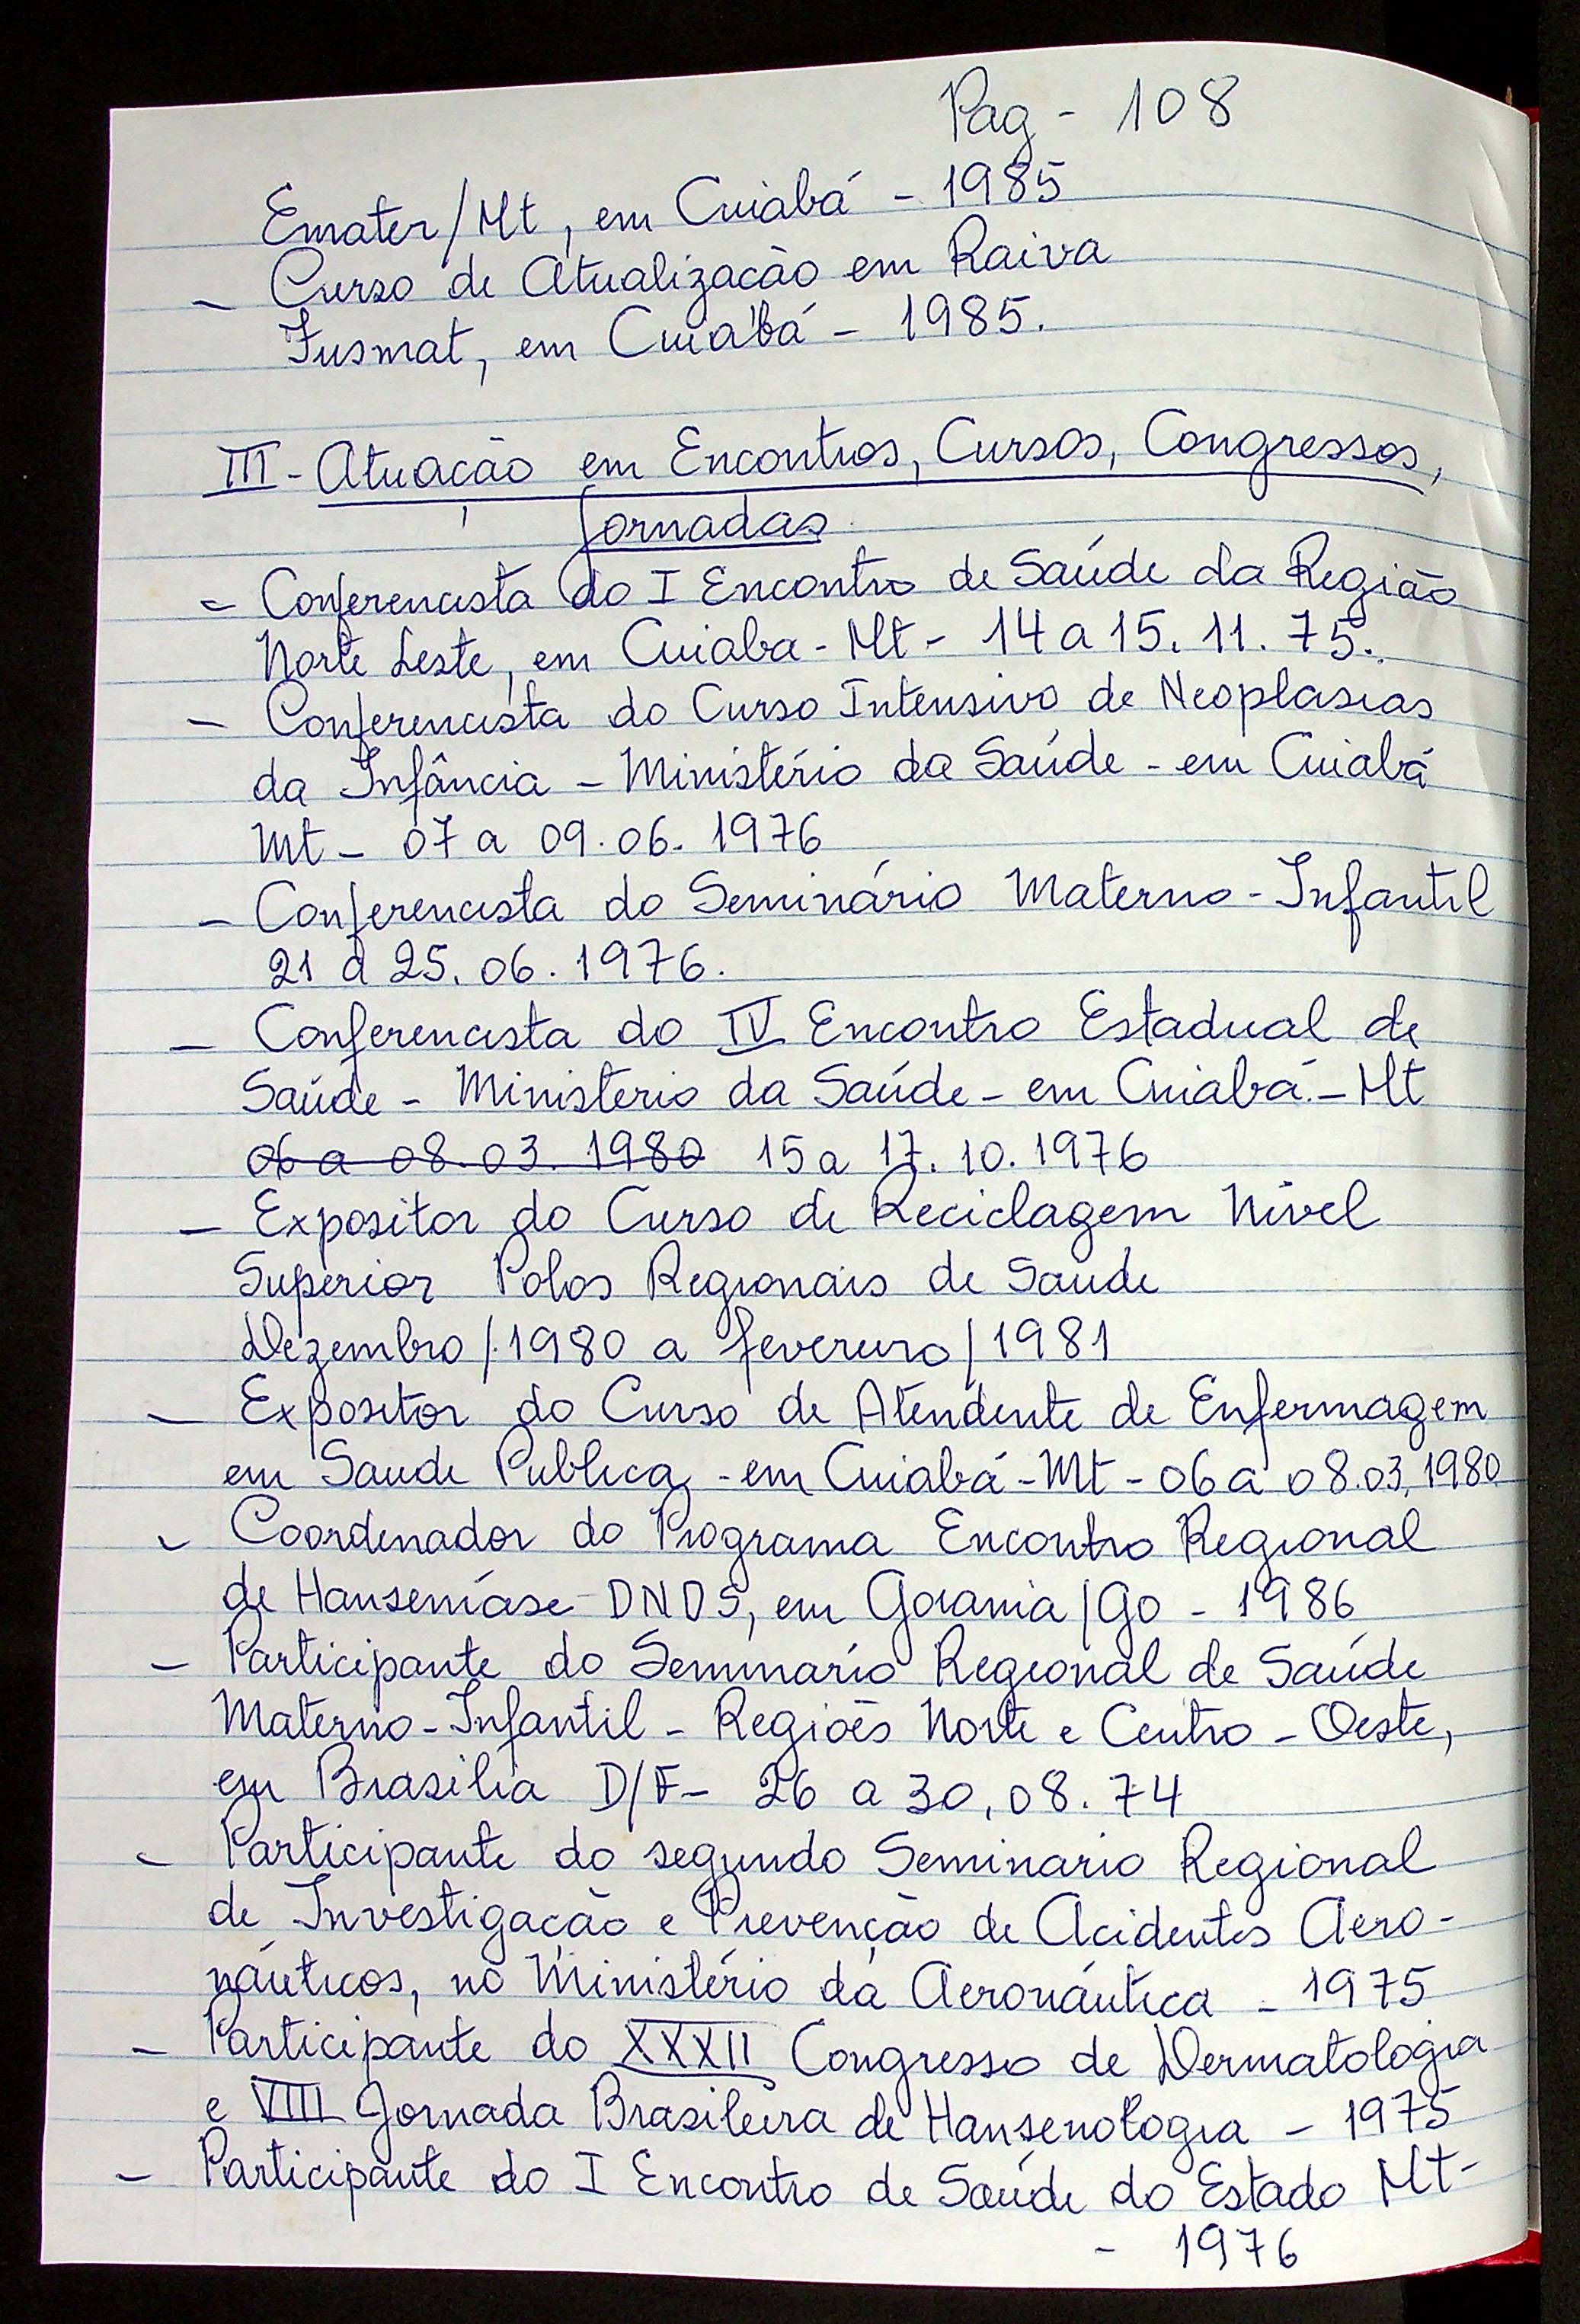 Pag - 108
Emater/Mt, em Cuiabá - 1985
- Curso de Atualização em Raiva
Fusmat, em Cuiabá - 1985.
III - Atuação em Encontros, Cursos, Congressos,
Jornadas
- Conferencista do I Encontro de Saúde da Região
Norte Leste, em Cuiaba - Mt - 14 a 15. 11. 75.
- Conferencista do Curso Intensivo de Neoplasias
da Infância - Ministério da Saúde - em Cuiabá
Mt - 07 a 09. 06. 1976
- Conferencista do Seminário Materno - Infantil
21 a 25. 06. 1976.
- Conferencista do IV Encontro Estadual de
Saúde - Ministerio da Saúde - em Cuiabá - Mt
06 a 08. 03. 1980 15 a 17. 10. 1976
- Expositor do Curso de Reciclagem Nível
Superior Polos Regionais de Saude
Dezembro/1980 a fevereiro/1981
- Expositor do Curso de Atendente de Enfermagem
em Saude Publica - em Cuiabá - Mt - 06 a 08.03.1980
- Coordenador do Programa Encontro Regional
de Hanseníase DNDS, em Goiania/Go - 1986
- Participante do Seminario Regional de Saúde
Materno - Infantil - Regiões Norte e Centro - Oeste,
em Brasilia D/F - 26 a 30. 08. 74
- Participante do segundo Seminario Regional
de Investigação e Prevenção de Acidentes Aero-
náuticos, no Ministério da Aeronáutica - 1975
- Participante do XXXII Congresso de Dermatologia
e VIII Jornada Brasileira de Hansenologia - 1975
- Participante do I Encontro de Saúde do Estado Mt -
- 1976